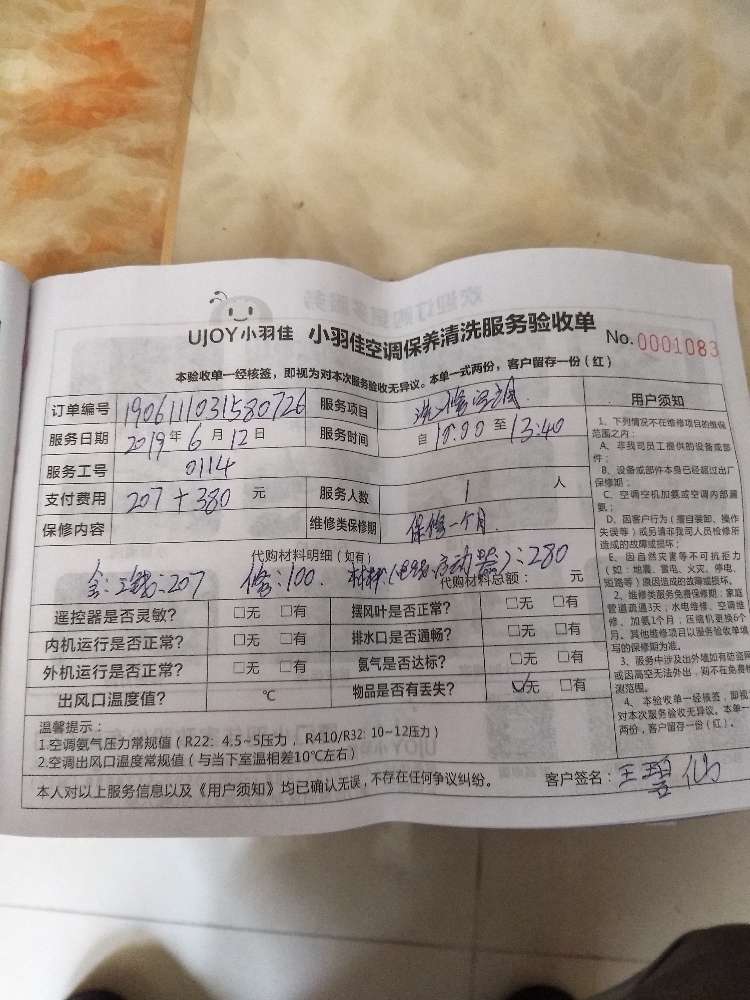 UJOY小羽佳 小羽佳空调保养清洗服务验收单 No.0001083
本验收单一经核签，即视为对本次服务验收无异议。本单一式两份，客户留存一份（红）
订单编号 1906111031580726 服务项目 洗、修空调
服务日期 2019年6月12日 服务时间 自10:00至13:40
服务工号 0114
支付费用 207+380元 服务人数 1人
保修内容 维修类保修期 保修一个月
代购材料明细（如有）
207 修:100. 材料(电容启动器):280
代购材料总额： 元
遥控器是否灵敏？ □无 □有 摆风叶是否正常？ □无 □有
内机运行是否正常？ □无 □有 排水口是否通畅？ □无 □有
外机运行是否正常？ □无 □有 氨气是否达标？ □无 □有
出风口温度值？ ℃ 物品是否有丢失？ ☑无 □有
温馨提示：
1.空调氨气压力常规值（R22：4.5~5压力，R410/R32: 10~12压力）
2.空调出风口温度常规值（与当下室温相差10℃左右）
本人对以上服务信息以及《用户须知》均已确认无误，不存在任何争议纠纷。 客户签名：王碧仙
用户须知
1、下列情况不在维修项目的维保
范围之内：
A、非我司员工提供的设备或部
件；
B、设备或部件本身已经超过出厂
保修期；
C、空调空机加氨或空调内部漏
氨；
D、因客户行为（擅自装卸、操作
失误等）或另请非我司人员检修所
造成的故障或损坏；
E、因自然灾害等不可抗拒力
（如：地震、雷电、火灾、停电、
短路等）原因造成的故障或损坏。
2、维修类服务免费保修期：家庭
管道疏通3天；水电维修、空调维
修、加氨1个月；压缩机更换6个
月。其他维修项目以服务验收单填
写的保修期为准。
3、服务中涉及出外墙如有防盗网
或因高空无法外出，则不在免费检
测范围。
4、本验收单一经核签，即视为
对本次服务验收无异议。本单一
两份，客户留存一份（红）。